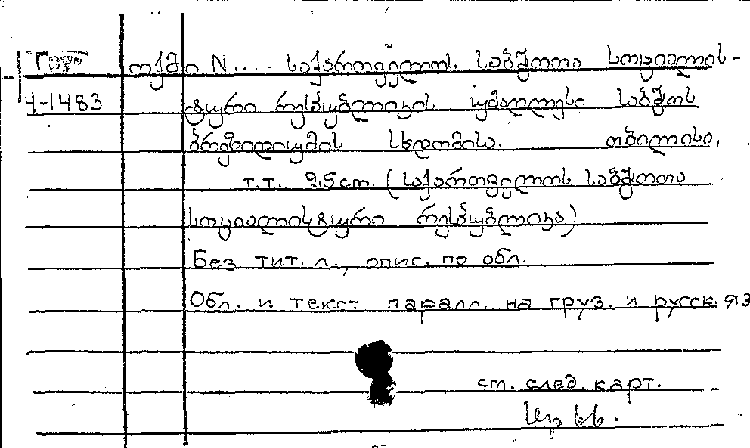 ოქმი N.... საქართველოს საბჭოთა სოციალის-
4-1483 ტური რესპუბლიკის უმაღლესი საბჭოს
პრეზიდიუმის სხდომისა. თბილისი,
т.т. 29,5 cm. (საქართველოს საბჭოთა
სოციალისტური რესპუბლიკა)
Без тит. л., опис. по обл.
Обл. и текст паралл. на груз. и русск. яз
см. след. карт.